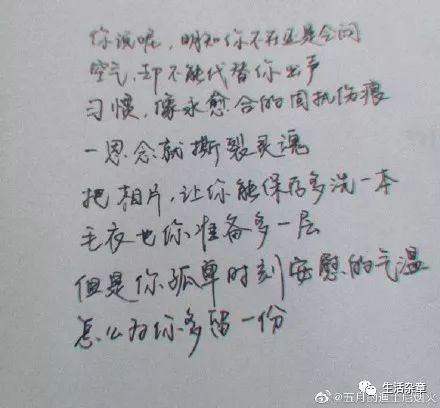 你说呢，明知你不在还是会问
空气，却不能代替你出声
习惯，像永愈合的固执伤痕
一思念就撕裂灵魂
把相片，让你能保存多洗一本
毛衣也你准备多一层
但是你孤单时刻安慰的气温
怎么为你多留一份
生活杂章
@五月的迪士尼烟火